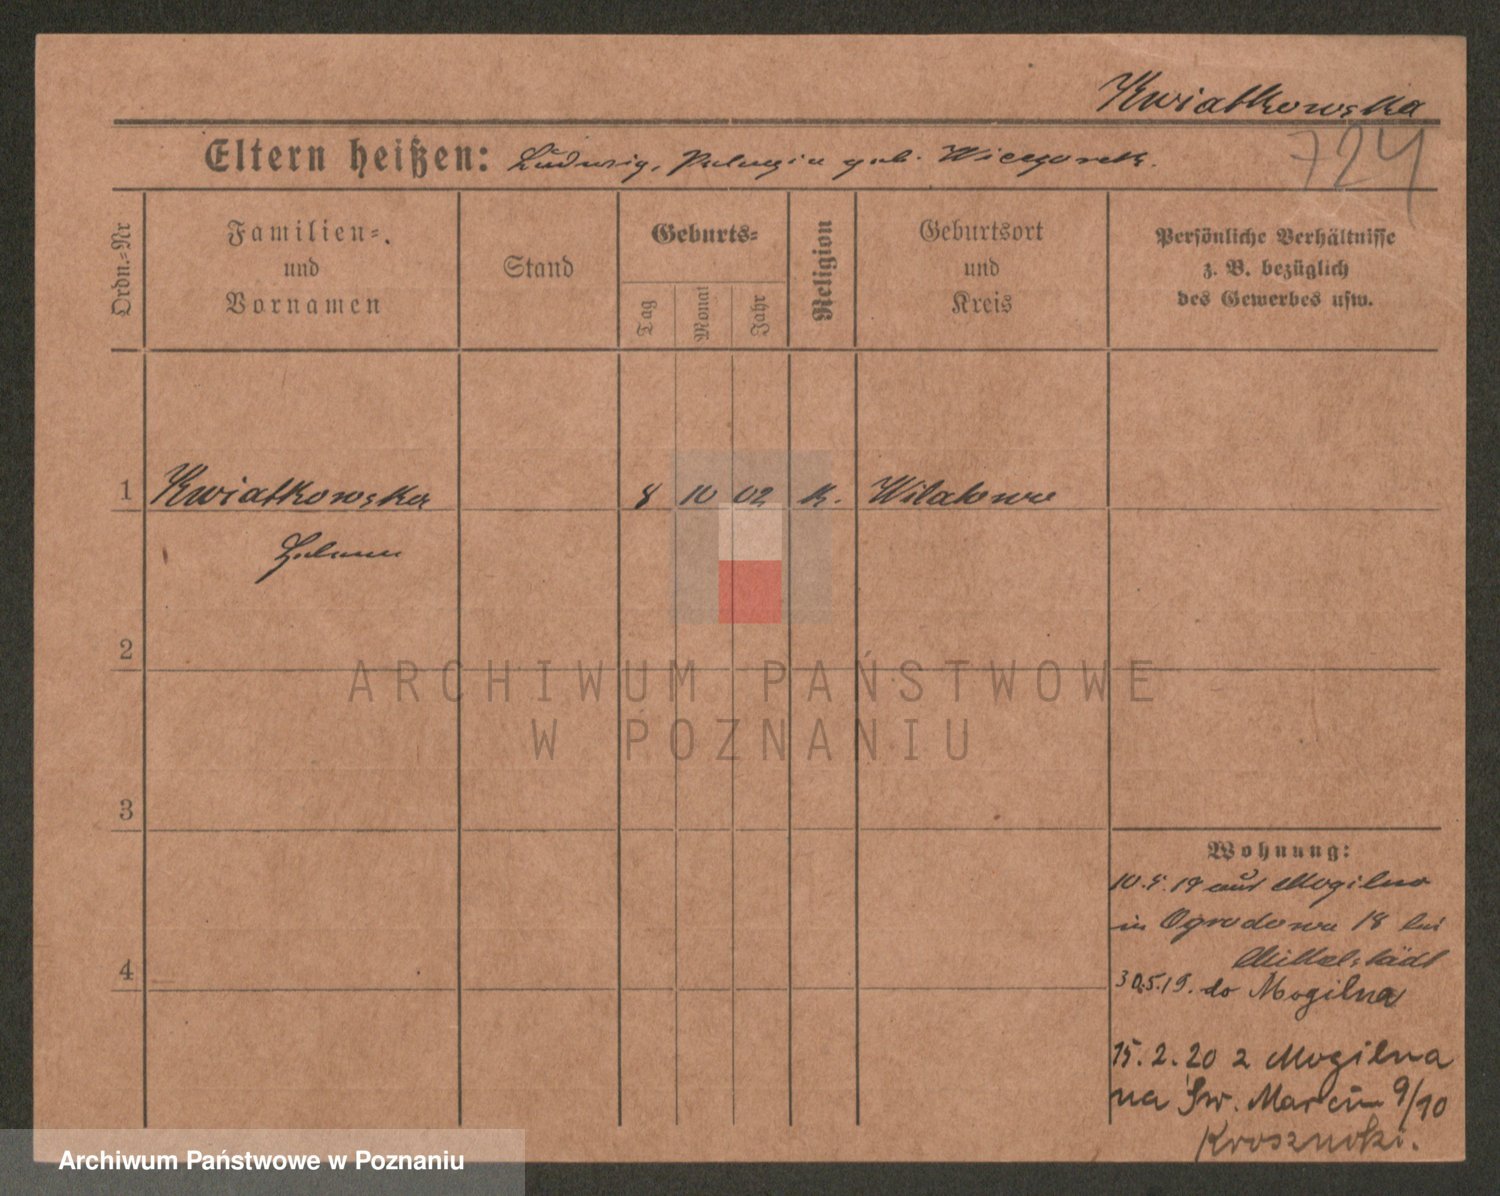 Kwiatkowska
724
Eltern heißen: Ludwig, Pelagia geb. Wieczorek.
Ordn.-Nr
Familien- und Vornamen
Stand
Geburts-
Tag
Monat
Jahr
Religion
Geburtsort und Kreis
Persönliche Verhältnisse
z. B. bezüglich
des Gewerbes usw.
1 Kwiatkowska 8 10 02 K. Wilatowo
Helena
2
3
4
Wohnung:
10.5.19 aus Mogilno
in Ogrodowa 18 bei
Mittelstädt
30.5.19. do Mogilna
15.2.20 z Mogilna
na Św. Marcin 9/10
ARCHIWUM PAŃSTWOWE
W POZNANIU
Archiwum Państwowe w Poznaniu